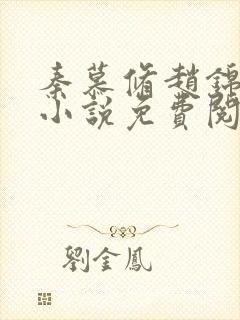 秦慕脩趙錦
小說免費閱
劉金鳳